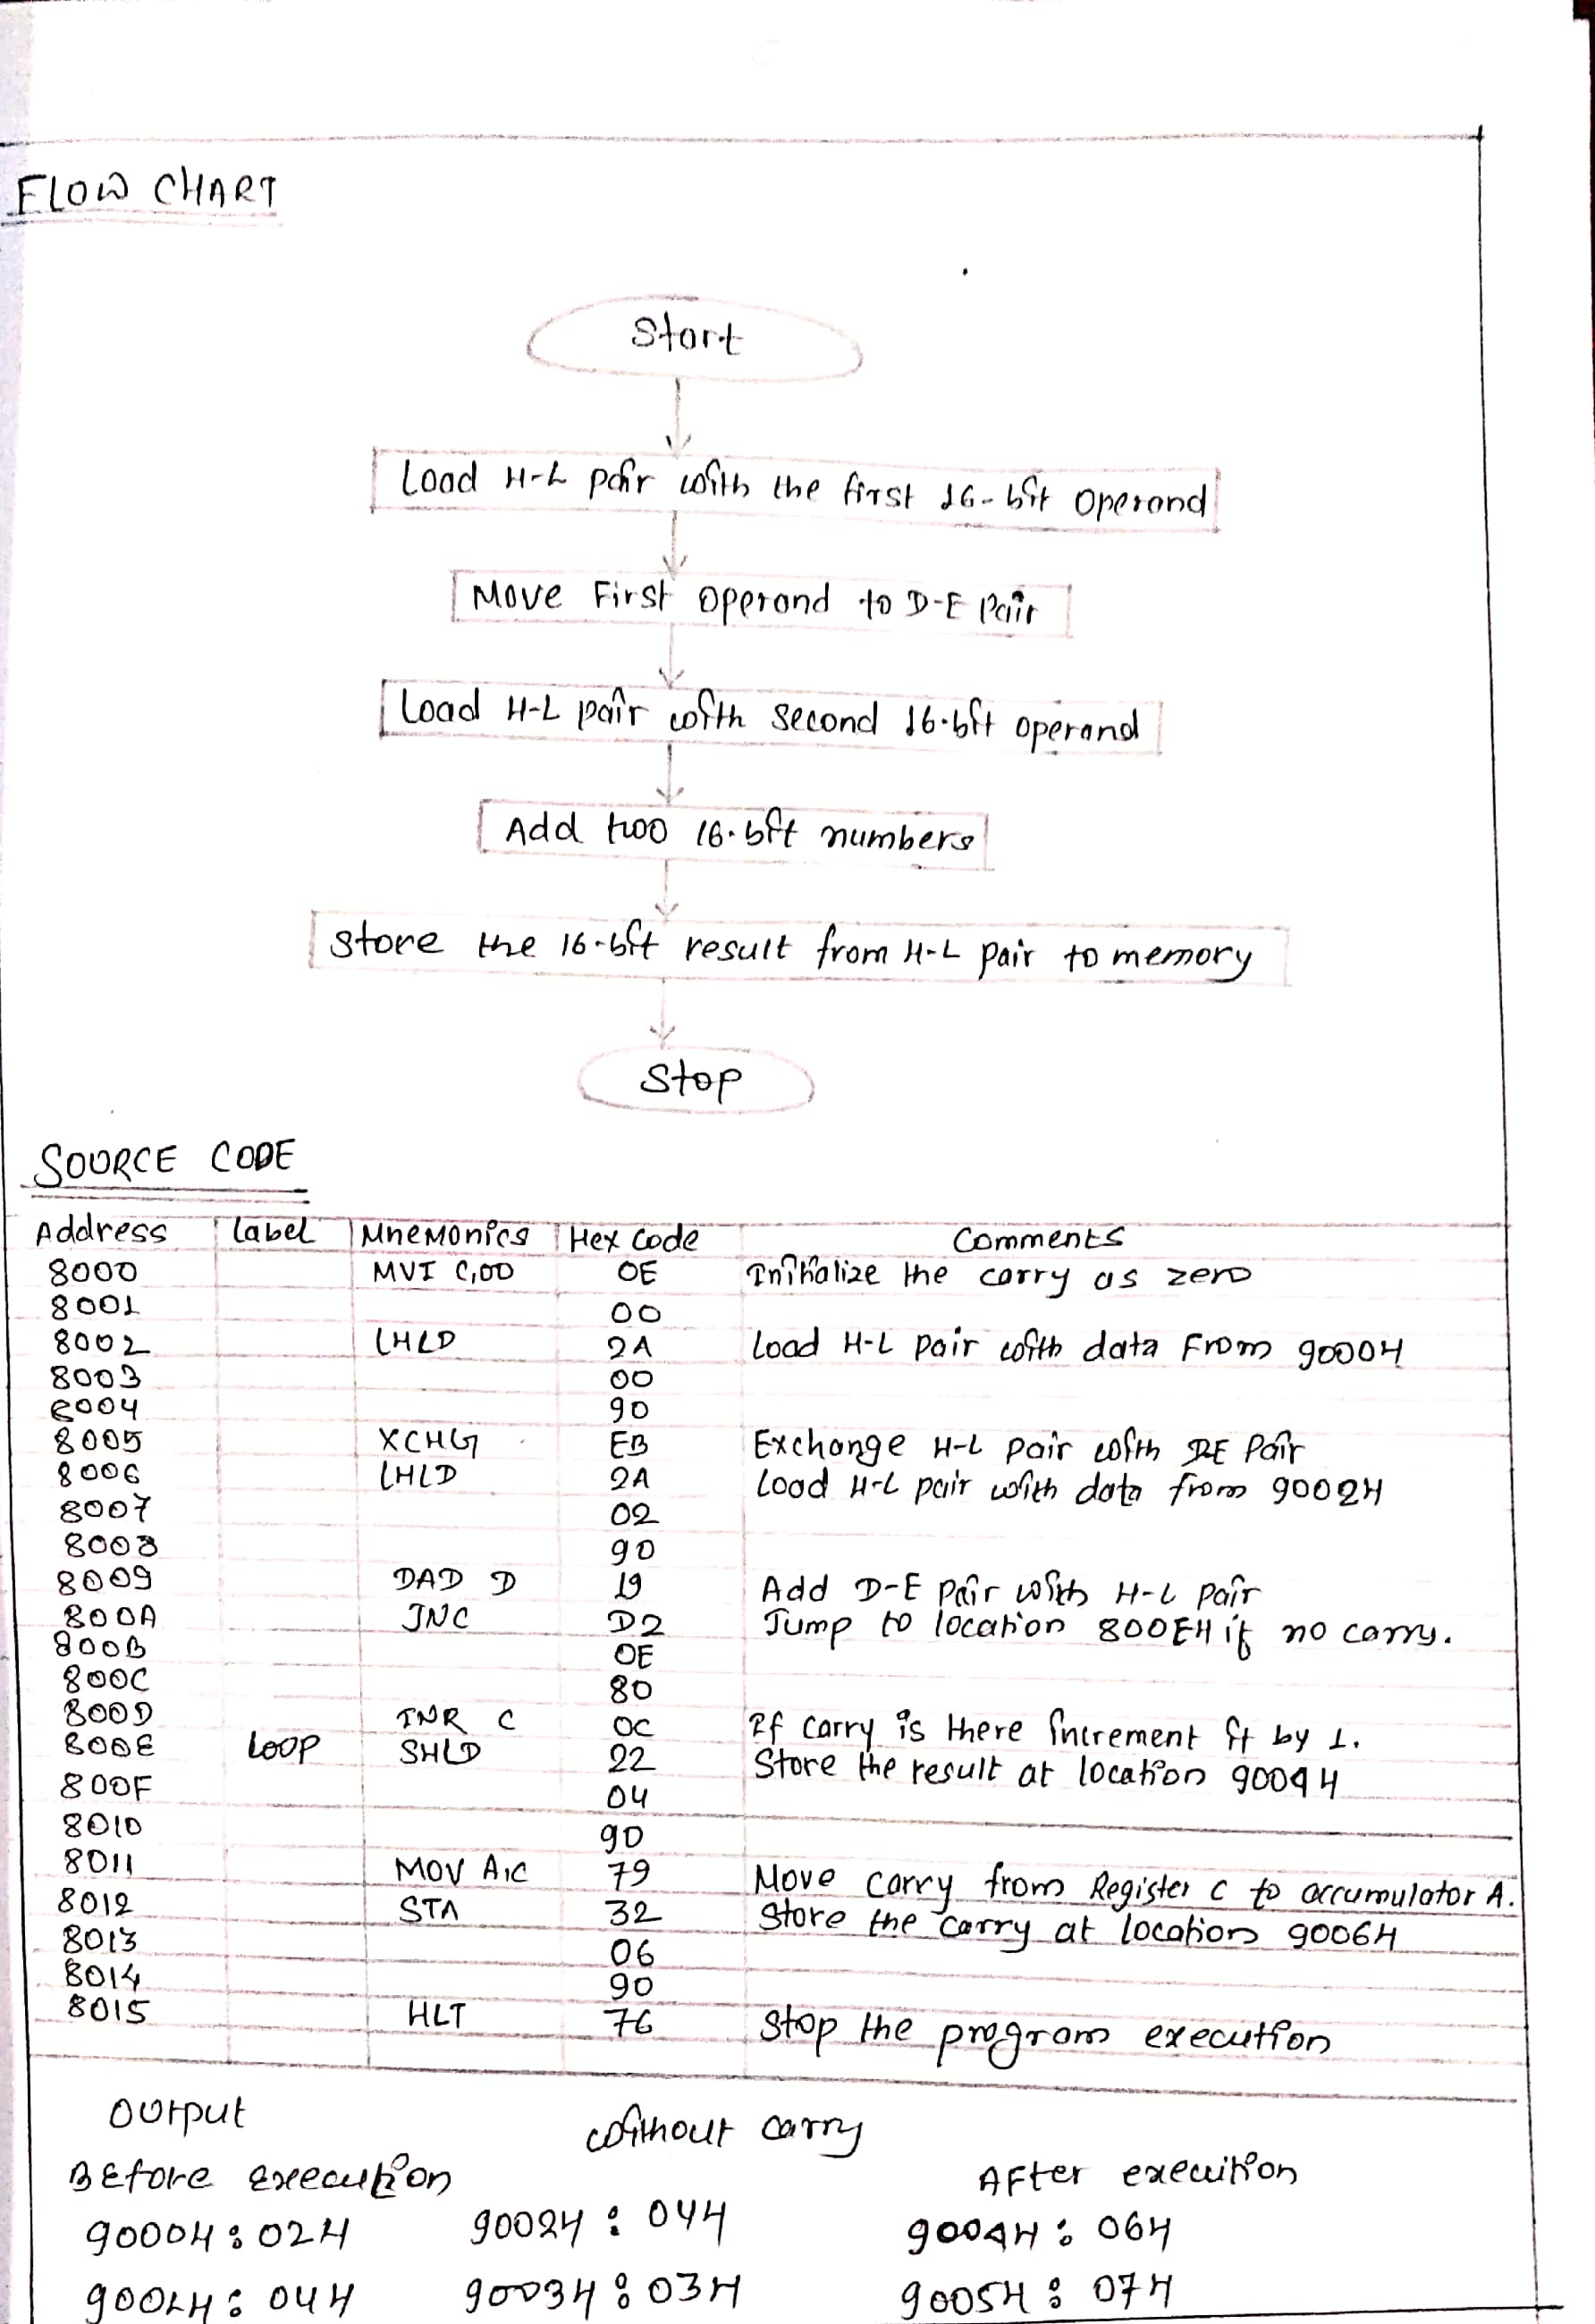 FLOW CHART
Start
Load H-L pair with the first 16-bit operand
Move First operand to D-E Pair
Load H-L pair with second 16-bit operand
Add two 16-bit numbers
Store the 16-bit result from H-L pair to memory
Stop
SOURCE CODE
Address Label Mnemonics Hex Code Comments
8000 MVI C,00 0E Initialize the carry as zero
8001 00
8002 LHLD 2A Load H-L pair with data From 9000H
8003 00
8004 90
8005 XCHG EB Exchange H-L pair with DE Pair
8006 LHLD 2A Load H-L pair with data from 9002H
8007 02
8008 90
8009 DAD D 19 Add D-E pair with H-L pair
800A JNC D2 Jump to location 800EH if no carry.
800B 0E
800C 80
800D INR C 0C If carry is there increment it by 1.
800E LOOP SHLD 22 Store the result at location 9004H
800F 04
8010 90
8011 MOV A,C 79 Move carry from Register C to accumulator A.
8012 STA 32 Store the carry at location 9006H
8013 06
8014 90
8015 HLT 76 Stop the program execution
Output
Without carry
Before execution After execution
9000H : 02H 9002H : 04H 9004H : 06H
9001H : 04H 9003H : 03H 9005H : 07H